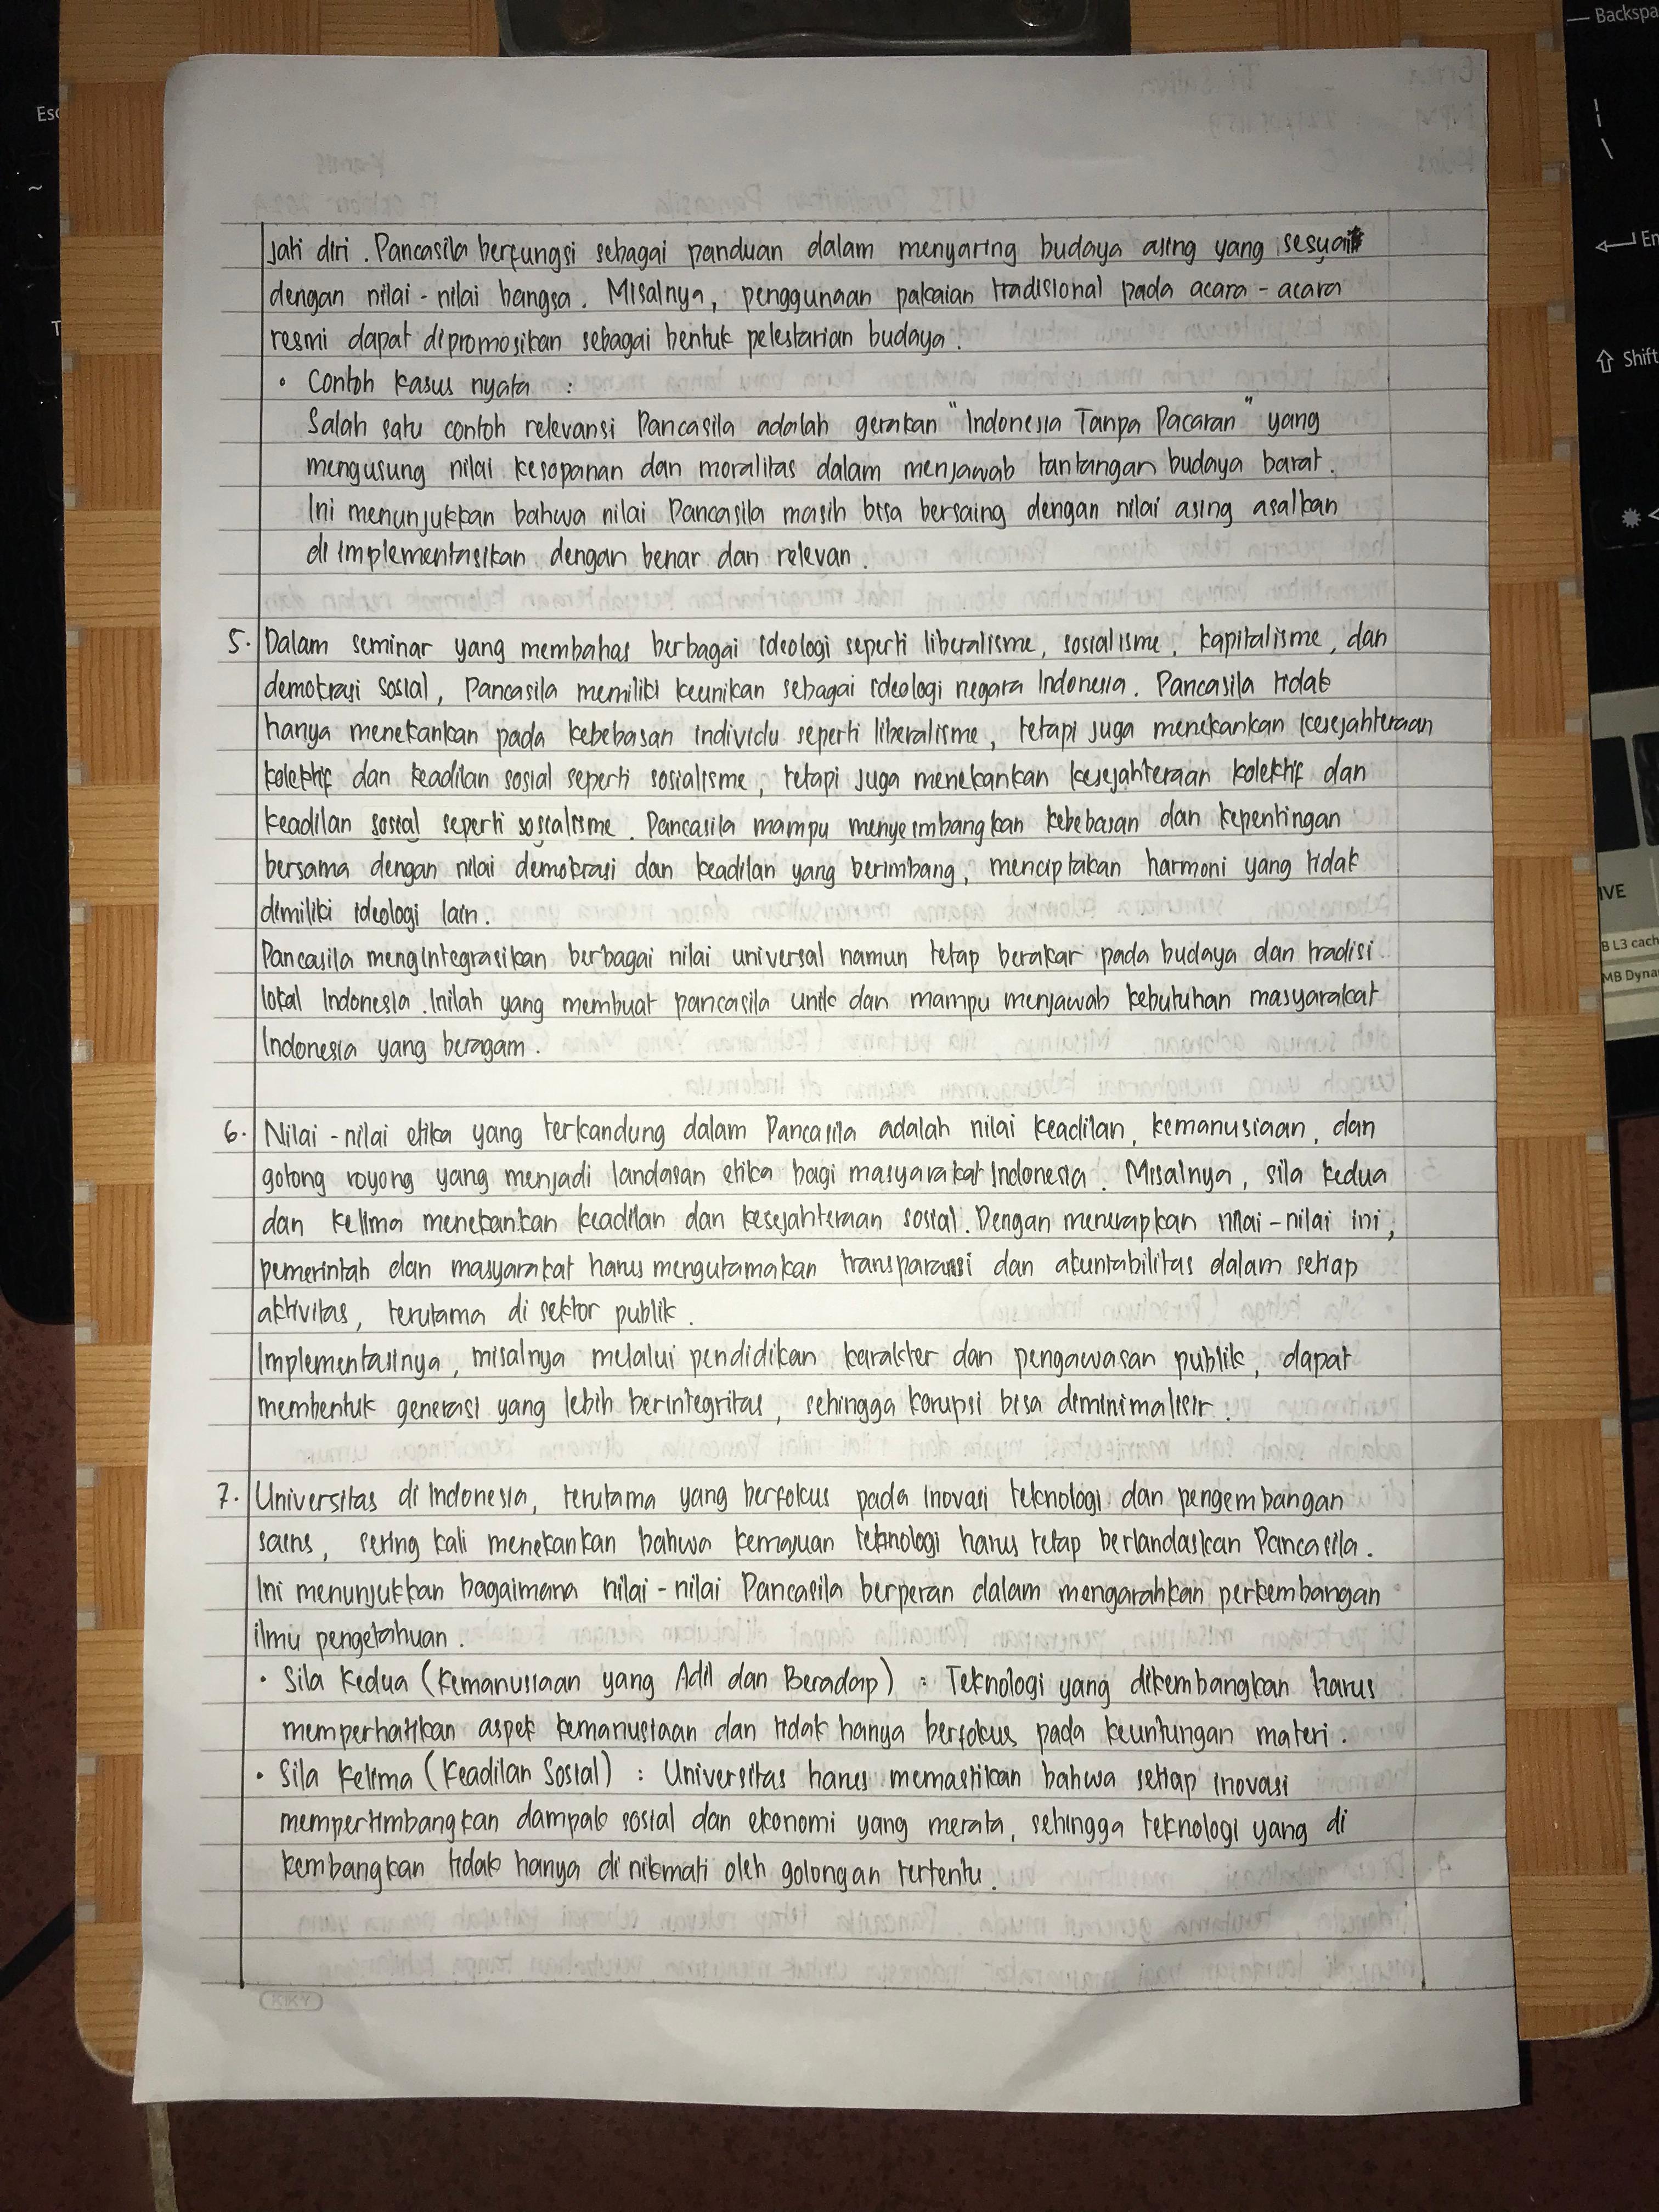 Backspa
Esc
~
En
Shift
IVE
B L3 cach
MB Dyna
jati diri. Pancasila berfungsi sebagai panduan dalam menyaring budaya asing yang sesuai
dengan nilai-nilai bangsa. Misalnya, penggunaan pakaian tradisional pada acara-acara
resmi dapat dipromosikan sebagai bentuk pelestarian budaya.
• Contoh kasus nyata :
Salah satu contoh relevansi Pancasila adalah gerakan "Indonesia Tanpa Pacaran" yang
mengusung nilai kesopanan dan moralitas dalam menjawab tantangan budaya barat.
Ini menunjukkan bahwa nilai Pancasila masih bisa bersaing dengan nilai asing asalkan
di implementasikan dengan benar dan relevan.
5. Dalam seminar yang membahas berbagai ideologi seperti liberalisme, sosialisme, kapitalisme, dan
demokrasi sosial, Pancasila memiliki keunikan sebagai ideologi negara Indonesia. Pancasila tidak
hanya menekankan pada kebebasan individu seperti liberalisme, tetapi juga menekankan kesejahteraan
kolektif dan keadilan sosial seperti sosialisme, tetapi juga menekankan kesejahteraan kolektif dan
keadilan sosial seperti sosialisme. Pancasila mampu menyeimbangkan kebebasan dan kepentingan
bersama dengan nilai demokrasi dan keadilan yang berimbang, menciptakan harmoni yang tidak
dimiliki ideologi lain.
Pancasila mengintegrasikan berbagai nilai universal namun tetap berakar pada budaya dan tradisi
lokal Indonesia. Inilah yang membuat pancasila unik dan mampu menjawab kebutuhan masyarakat
Indonesia yang beragam.
6. Nilai-nilai etika yang terkandung dalam Pancasila adalah nilai keadilan, kemanusiaan, dan
gotong royong yang menjadi landasan etika bagi masyarakat Indonesia. Misalnya, sila kedua
dan kelima menekankan keadilan dan kesejahteraan sosial. Dengan menerapkan nilai-nilai ini,
pemerintah dan masyarakat harus mengutamakan transparansi dan akuntabilitas dalam setiap
aktivitas, terutama di sektor publik.
Implementasinya, misalnya melalui pendidikan karakter dan pengawasan publik, dapat
membentuk generasi yang lebih berintegritas, sehingga korupsi bisa diminimalisir.
7. Universitas di Indonesia, terutama yang berfokus pada inovasi teknologi dan pengembangan
sains, sering kali menekankan bahwa kemajuan teknologi harus tetap berlandaskan Pancasila.
Ini menunjukkan bagaimana nilai-nilai Pancasila berperan dalam mengarahkan perkembangan
ilmu pengetahuan.
• Sila Kedua (Kemanusiaan yang Adil dan Beradap) : Teknologi yang dikembangkan harus
memperhatikan aspek kemanusiaan dan tidak hanya berfokus pada keuntungan materi.
• Sila Kelima (Keadilan Sosial) : Universitas harus memastikan bahwa setiap inovasi
mempertimbangkan dampak sosial dan ekonomi yang merata, sehingga teknologi yang di
kembangkan tidak hanya di nikmati oleh golongan tertentu.
KIKY